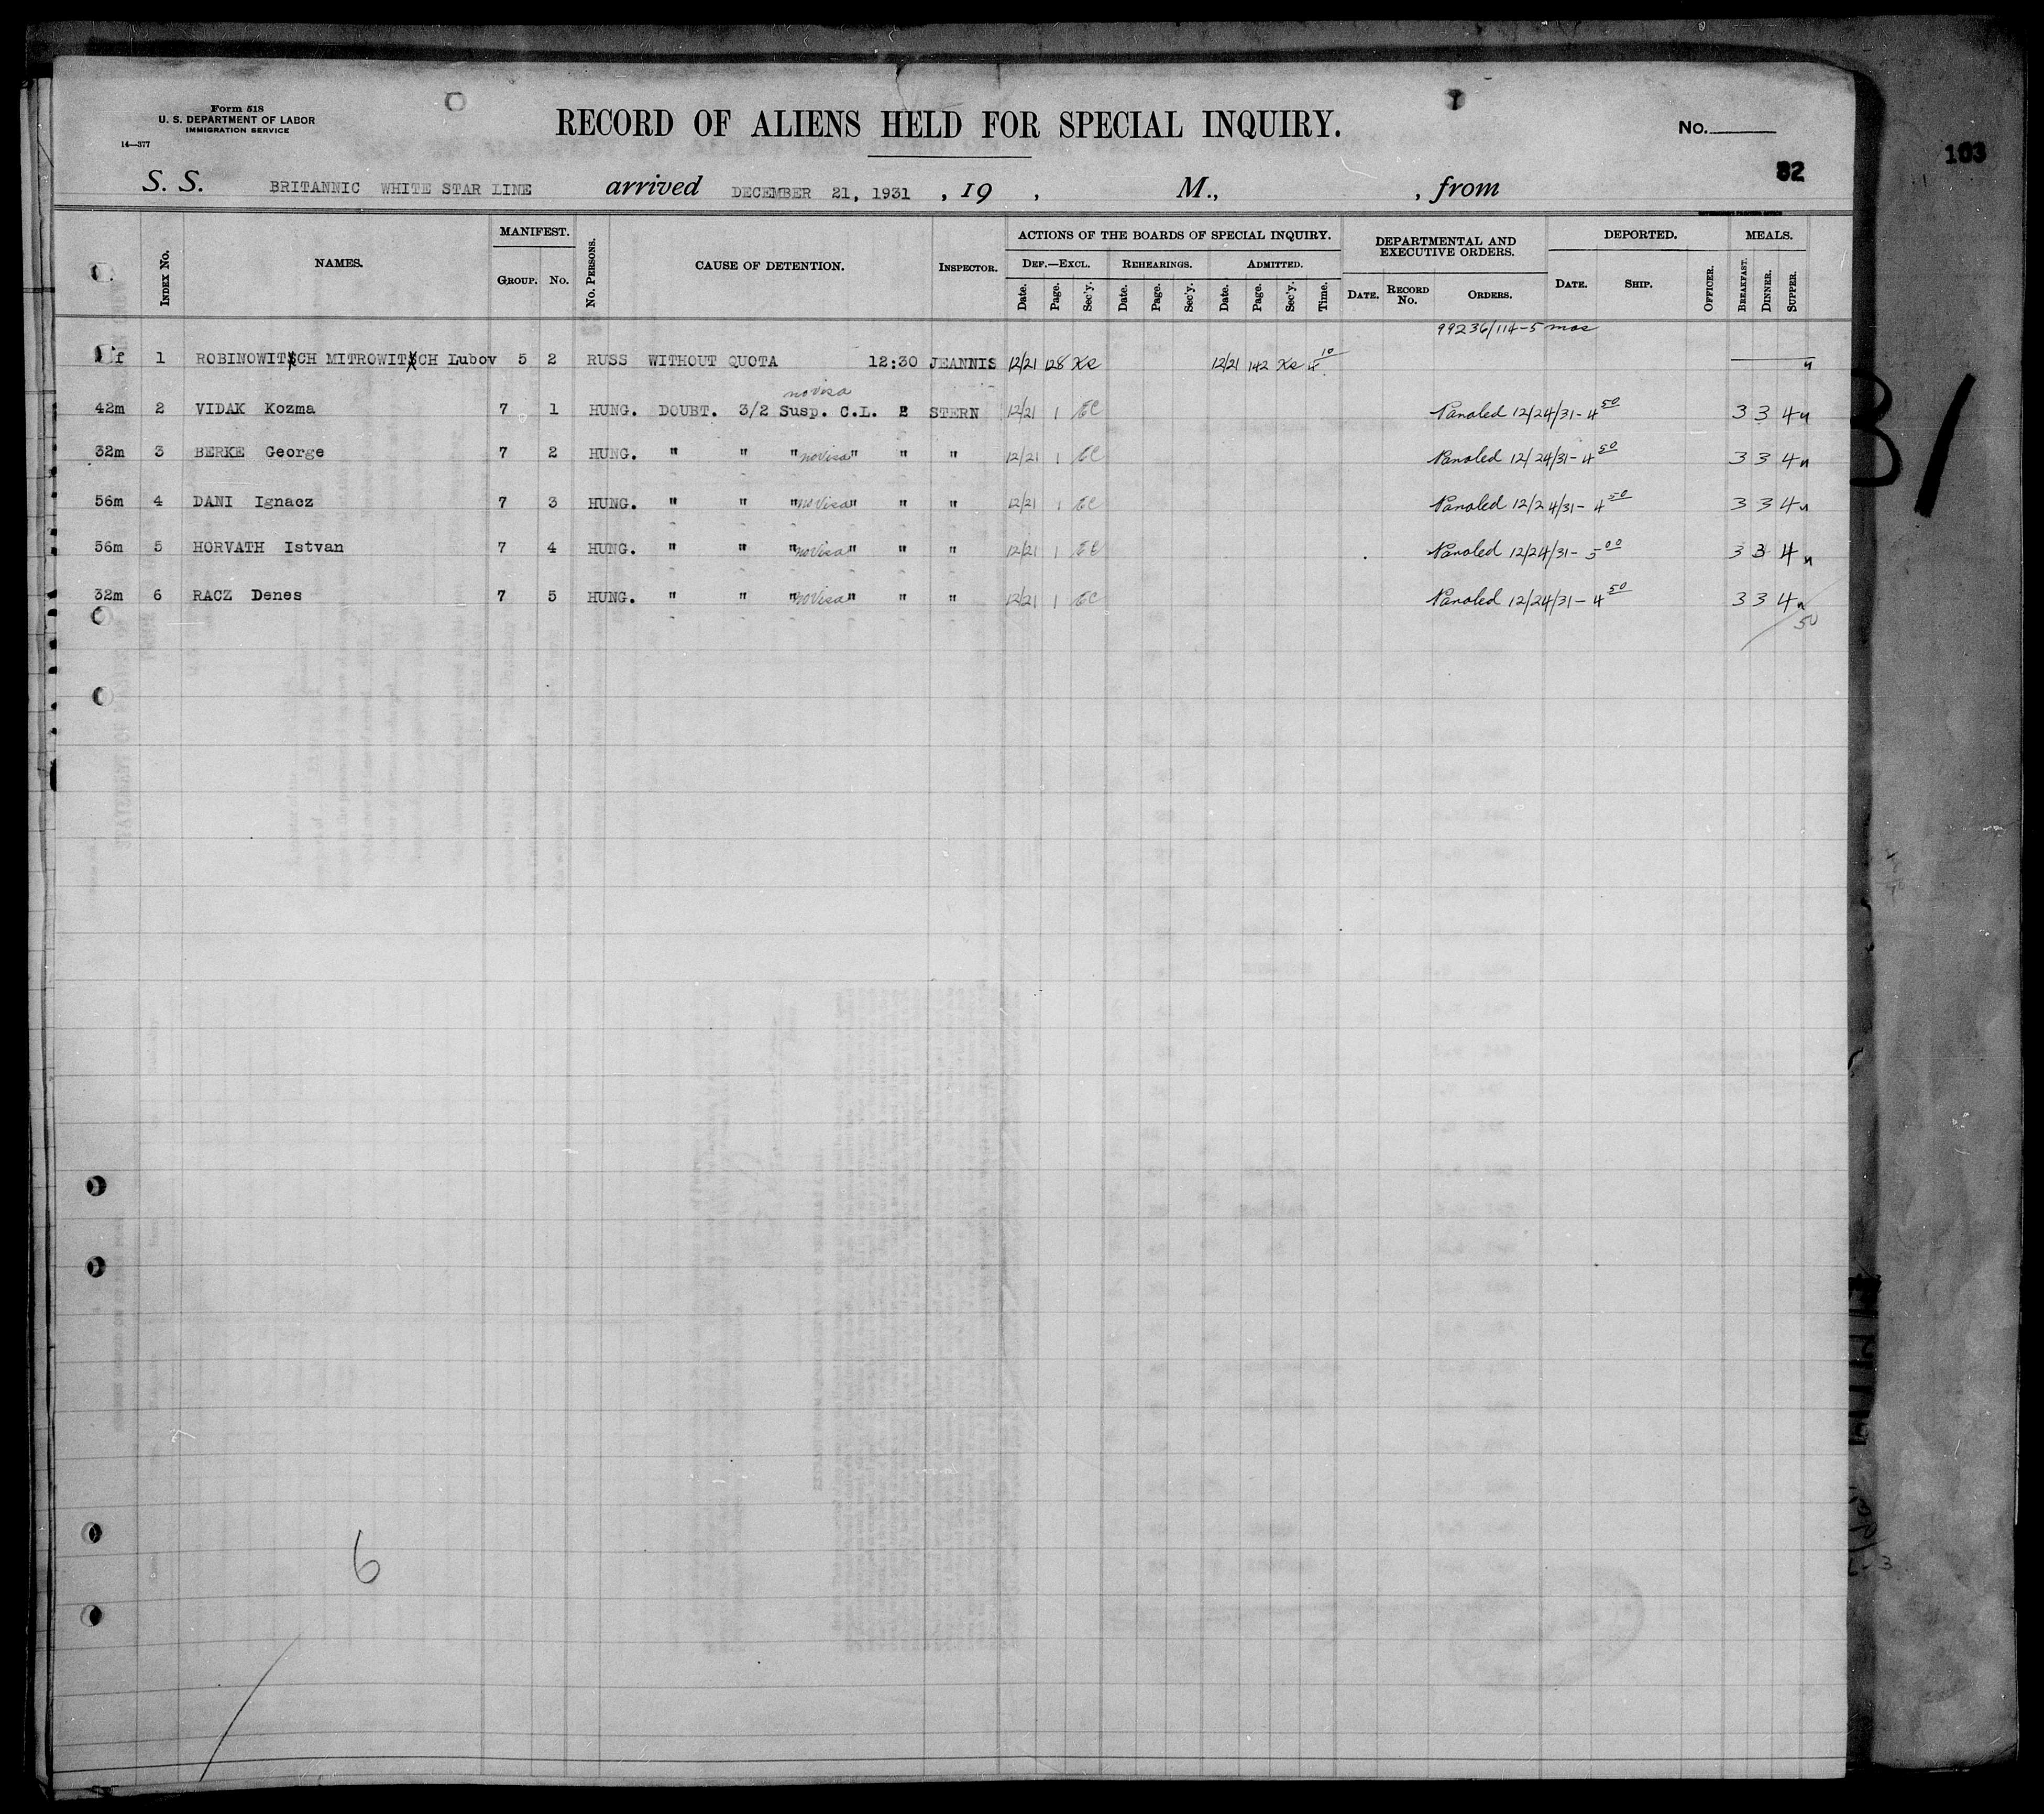 Form 518
U. S. DEPARTMENT OF LABOR
IMMIGRATION SERVICE
14—377
RECORD OF ALIENS HELD FOR SPECIAL INQUIRY.
No.
103
82
S. S. BRITANNIC WHITE STAR LINE arrived DECEMBER 21, 1931 , 19 , M., , from
Index No. NAMES. MANIFEST. Group. No. No. Persons. CAUSE OF DETENTION. Inspector. ACTIONS OF THE BOARDS OF SPECIAL INQUIRY. Def.—Excl. Date. Page. Sec'y. Rehearings. Date. Page. Sec'y. Admitted. Date. Page. Sec'y. Time. DEPARTMENTAL AND EXECUTIVE ORDERS. Date. Record No. Orders. DEPORTED. Date. Ship. Officer. MEALS. Breakfast. Dinner. Supper.
99236/114-5 mos
f 1 ROBINOWITSCH MITROWITSCH Lubov 5 2 RUSS WITHOUT QUOTA 12:30 JEANNIS 12/21 128 12/21 142 4 10
no visa
42m 2 VIDAK Kozma 7 1 HUNG. DOUBT. 3/2 Susp. C.L. 2 STERN 12/21 1 EC Paroled 12/24/31 - 4 50 3 3 4
32m 3 BERKE George 7 2 HUNG. " " " no visa " " " 12/21 1 EC Paroled 12/24/31 - 4 50 3 3 4
56m 4 DANI Ignacz 7 3 HUNG. " " " no visa " " " 12/21 1 EC Paroled 12/24/31 - 4 50 3 3 4
56m 5 HORVATH Istvan 7 4 HUNG. " " " no visa " " " 12/21 1 EC Paroled 12/24/31 - 5 00 3 3 4
32m 6 RACZ Denes 7 5 HUNG. " " " no visa " " " 12/21 1 EC Paroled 12/24/31 - 4 50 3 3 4
50
31
6